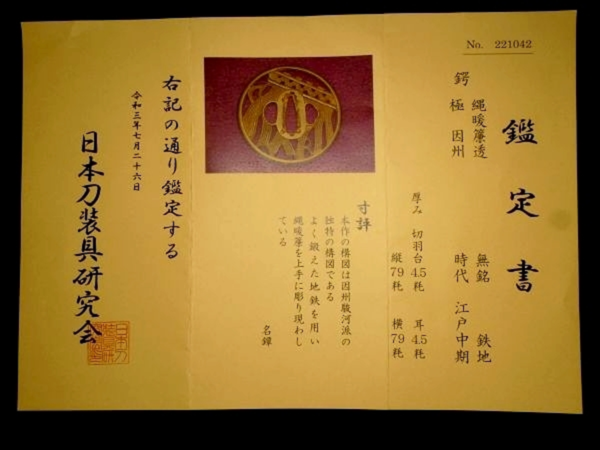 No. 221042
鑑定書
鍔 縄暖簾透 無銘 鉄地
極 因州 時代 江戸中期
厚み 切羽台 4.5粍 耳 4.5粍
縦 79粍 横 79粍
寸評
本作の構図は因州駿河派の
独特の構図である
よく鍛えた地鉄を用い
縄暖簾を上手に彫り現わし
ている
名鐔
右記の通り鑑定する
令和三年七月二十六日
日本刀装具研究会